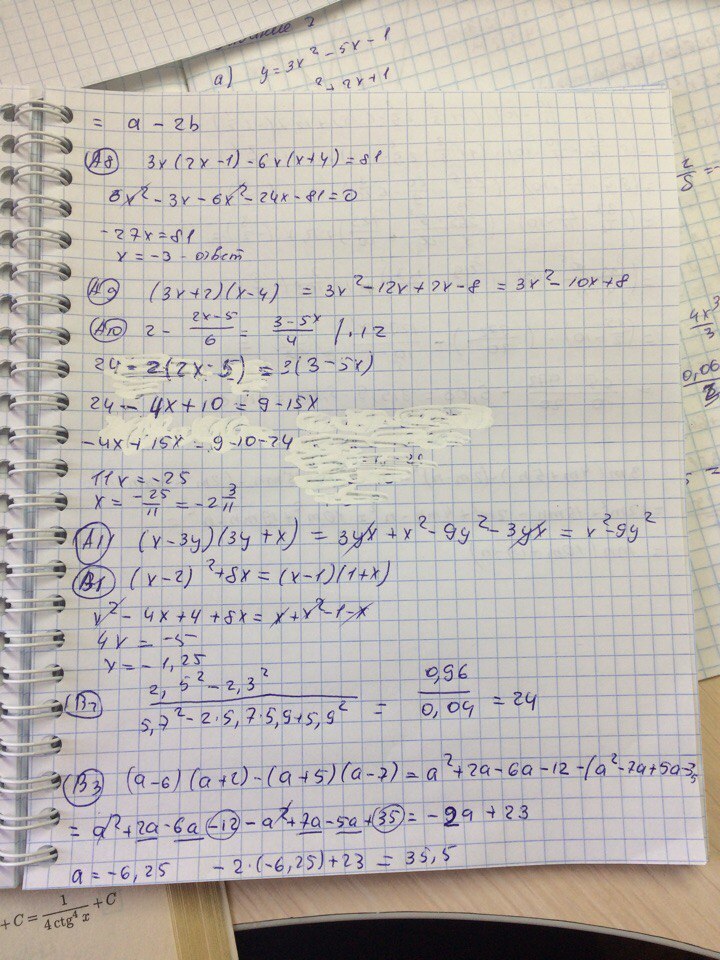 а) y = 3x² - 5x - 1
² + 2x + 1
= a - 2b
А8 3x(2x-1) - 6x(x+4) = 81
6x² - 3x - 6x² - 24x - 81 = 0
-27x = 81
x = -3 - ответ
А9 (3x+2)(x-4) = 3x² - 12x + 2x - 8 = 3x² - 10x + 8
А10 2 - (2x-5)/6 = (3-5x)/4 /·12
24 - 2(2x-5) = 3(3-5x)
24 - 4x + 10 = 9 - 15x
-4x + 15x = 9-10-24
11x = -25
x = -25/11 = -2 3/11
А11 (x-3y)(3y+x) = 3yx + x² - 9y² - 3yx = x² - 9y²
В1 (x-2)² + 8x = (x-1)(1+x)
x² - 4x + 4 + 8x = x + x² - 1 - x
4x = -5
x = -1,25
В2 (2,5² - 2,3²)/(5,7² - 2·5,7·5,9 + 5,9²) = 0,96/0,04 = 24
В3 (a-6)(a+2) - (a+5)(a-7) = a² + 2a - 6a - 12 - (a² - 7a + 5a - 35
= a² + 2a - 6a - 12 - a² + 7a - 5a + 35 = -2a + 23
a = -6,25 -2·(-6,25) + 23 = 35,5
2/5
4x³/3
0,06
+ C = 1/(4 ctg⁴ x) + C